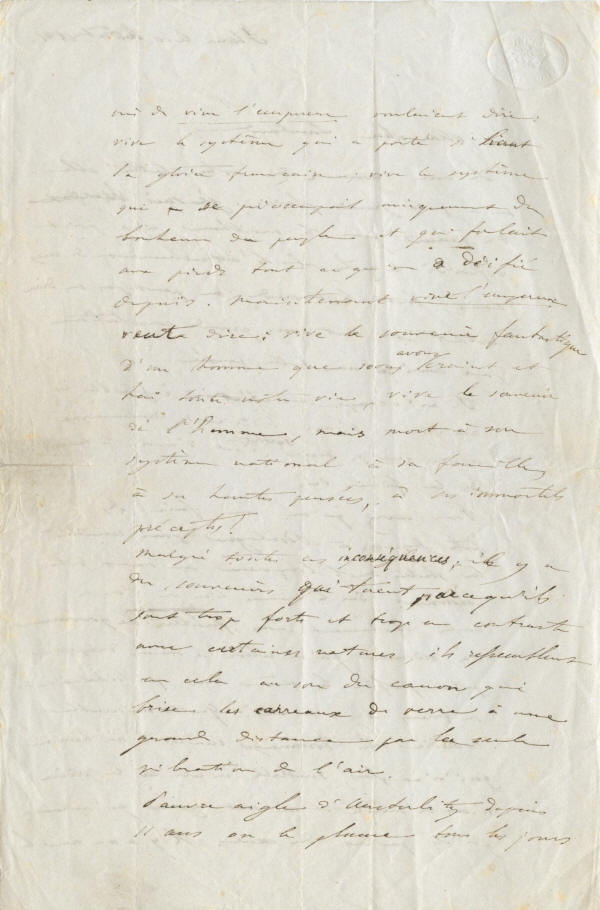 cri de vive l'empereur voulaient dire:
vive le système qui a porté si haut
la gloire française, vive le système
qui se préoccupait uniquement du
bonheur du peuple et qui foulait
aux pieds tout ce qu'on a déifié
depuis. Maintenant vive l'empereur
veut dire: vive le souvenir fantastique
d'un homme que nous avons craint et
haï toute notre vie, vive le souvenir
de l'homme, mais mort à son
système national à sa famille,
à ses hautes pensées, à ses immortels
préceptes!
Malgré toutes ces inconséquences, il y a
des souvenirs qui tuent parcequ'ils
sont trop forts et trop en contraste
avec certaines natures, ils ressemblent
en cela au son du canon qui
brise les carreaux de verre à une
grande distance par la seule
vibration de l'air.
Pauvre aigle d'Austerlitz depuis
11 ans on le plume tous les jours